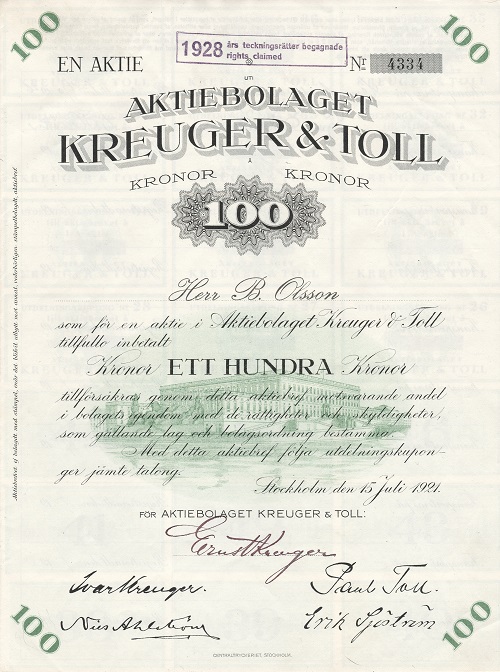 100
100
1928 års teckningsrätter begagnade
rights claimed
EN AKTIE
Nr 4334
UTI
AKTIEBOLAGET
KREUGER & TOLL
Å
KRONOR KRONOR
100
Herr B. Olsson
som för en aktie i Aktiebolaget Kreuger & Toll
tillfullo inbetalt
Kronor ETT HUNDRA Kronor
tillförsäkras genom detta aktiebref motsvarande andel
i bolagets egendom med de rättigheter och skyldigheter,
som gällande lag och bolagsordning bestämma.
Med detta aktiebref följa utdelningskupon-
ger jämte talong.
Stockholm den 15 Juli 1921.
FÖR AKTIEBOLAGET KREUGER & TOLL:
Ernst Kreuger
Ivar Kreuger.
Paul Toll.
Nils Ahlström
Erik Sjöström
100
100
CENTRALTRYCKERIET, STOCKHOLM.